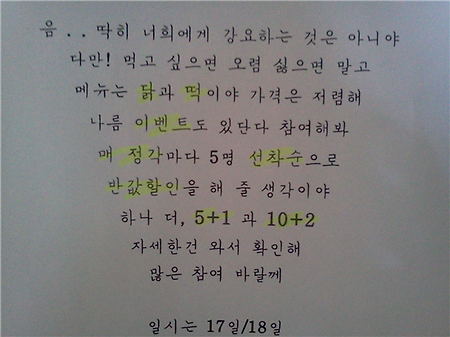 음 . . 딱히 너희에게 강요하는 것은 아니야
다만! 먹고 싶으면 오렴 싫으면 말고
메뉴는 닭과 떡이야 가격은 저렴해
나름 이벤트도 있단다 참여해봐
매 정각마다 5명 선착순으로
반값할인을 해 줄 생각이야
하나 더, 5+1 과 10+2
자세한건 와서 확인해
많은 참여 바랄께
일시는 17일/18일